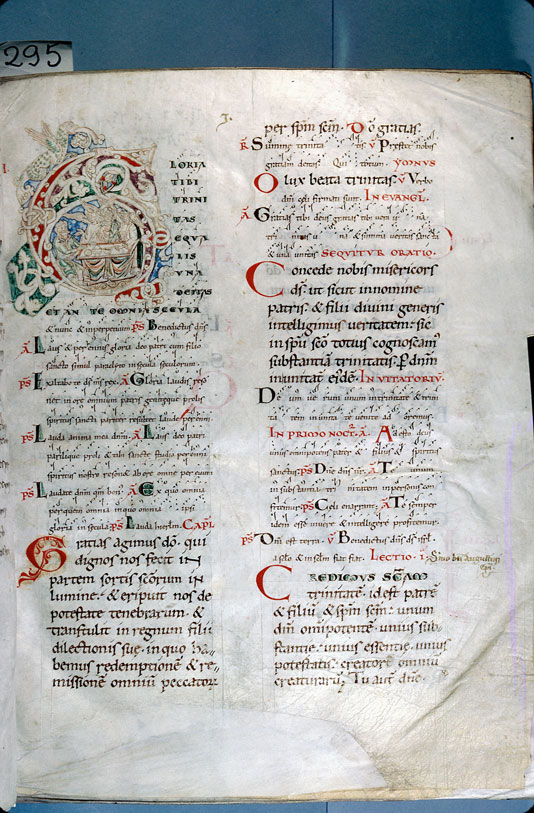 295
LORIA
TIBI
TRINI
TAS
EQUA
LIS
UNA
DEITAS
ET ANTE OMNIA SECULA
& nunc & inperpetuum ps Benedictus dn̄s
A Laus & perennis gloria deo patri cum filio
sancto simul paraclyto in secula seculorum
ps Exaltabo te d̄s m̄s rex. A Gloria laudis reso
net in ore omnium patri genitęque proli
spiritui sancto pariter resultet laude perenni
ps Lauda anima mea dn̄m. A Laus deo patri
parilique proli & tibi sancte studio perenni
spiritus nostro resonet ab ore omne per euum
ps Laudate dn̄m qm̄ bon. A Ex quo omnia
per quem omnia in quo omnia ipsi
gloria in secula ps Lauda hierlm̄. CAPL
Gratias agimus dō. qui
dignos nos fecit in
partem sortis sc̄orum in
lumine. & eripuit nos de
potestate tenebrarum. &
transtulit in regnum filii
dilectionis suę. in quo ha
bemus redemptionē & re
missionē omniū peccator
per sp̄m sc̄m. Dō gratias.
R Summe trinita tis V Prestet nobis
gratiam deitas Qui totum YMNUS
O lux beata trinitas. V Verbo
dn̄i cęli firmati sunt. IN EVANGL.
A Gratias tibi deus gratias tibi vera u na
tri nitas u na & summa veritas sancta
& una unitas SEQUITUR ORATIO.
Concede nobis misericors
d̄s. ut sicut in nomine
patris & filii divini generis
intelligimus veritatem. sic
in spū sc̄o totius cognoscam
substantiā trinitatis. P dn̄m
in unitat eiusdē. INVITATORIŪ.
De um ve rum unum in trinitate & trini
ta tem in unita te venite ad oremus.
IN PRIMO NOCT. A Adesto deus
unus omnipotens pater & filius & spiritus
sanctus ps Dn̄e dn̄s nr̄. A Te unum
in substantia tri nitatem in personis con
fitemur ps Cęli enarrant. A Te semper
idem esse vivere & intelligere profitemur.
ps Dn̄i est terra. V Benedictus dn̄s d̄s isrl
a sclo & in sclm fiat fiat. LECTIO. I. Smo bti augustini
epi.
CREDIMUS SC̄AM
trinitatē. id est patrē
& filiū & sp̄m sc̄m. unum
dm̄ omp̄otentē. unius sub
stantię. unius essentię. unius
potestatis. creatorē omniū
creaturarū. Tu aut dn̄e.